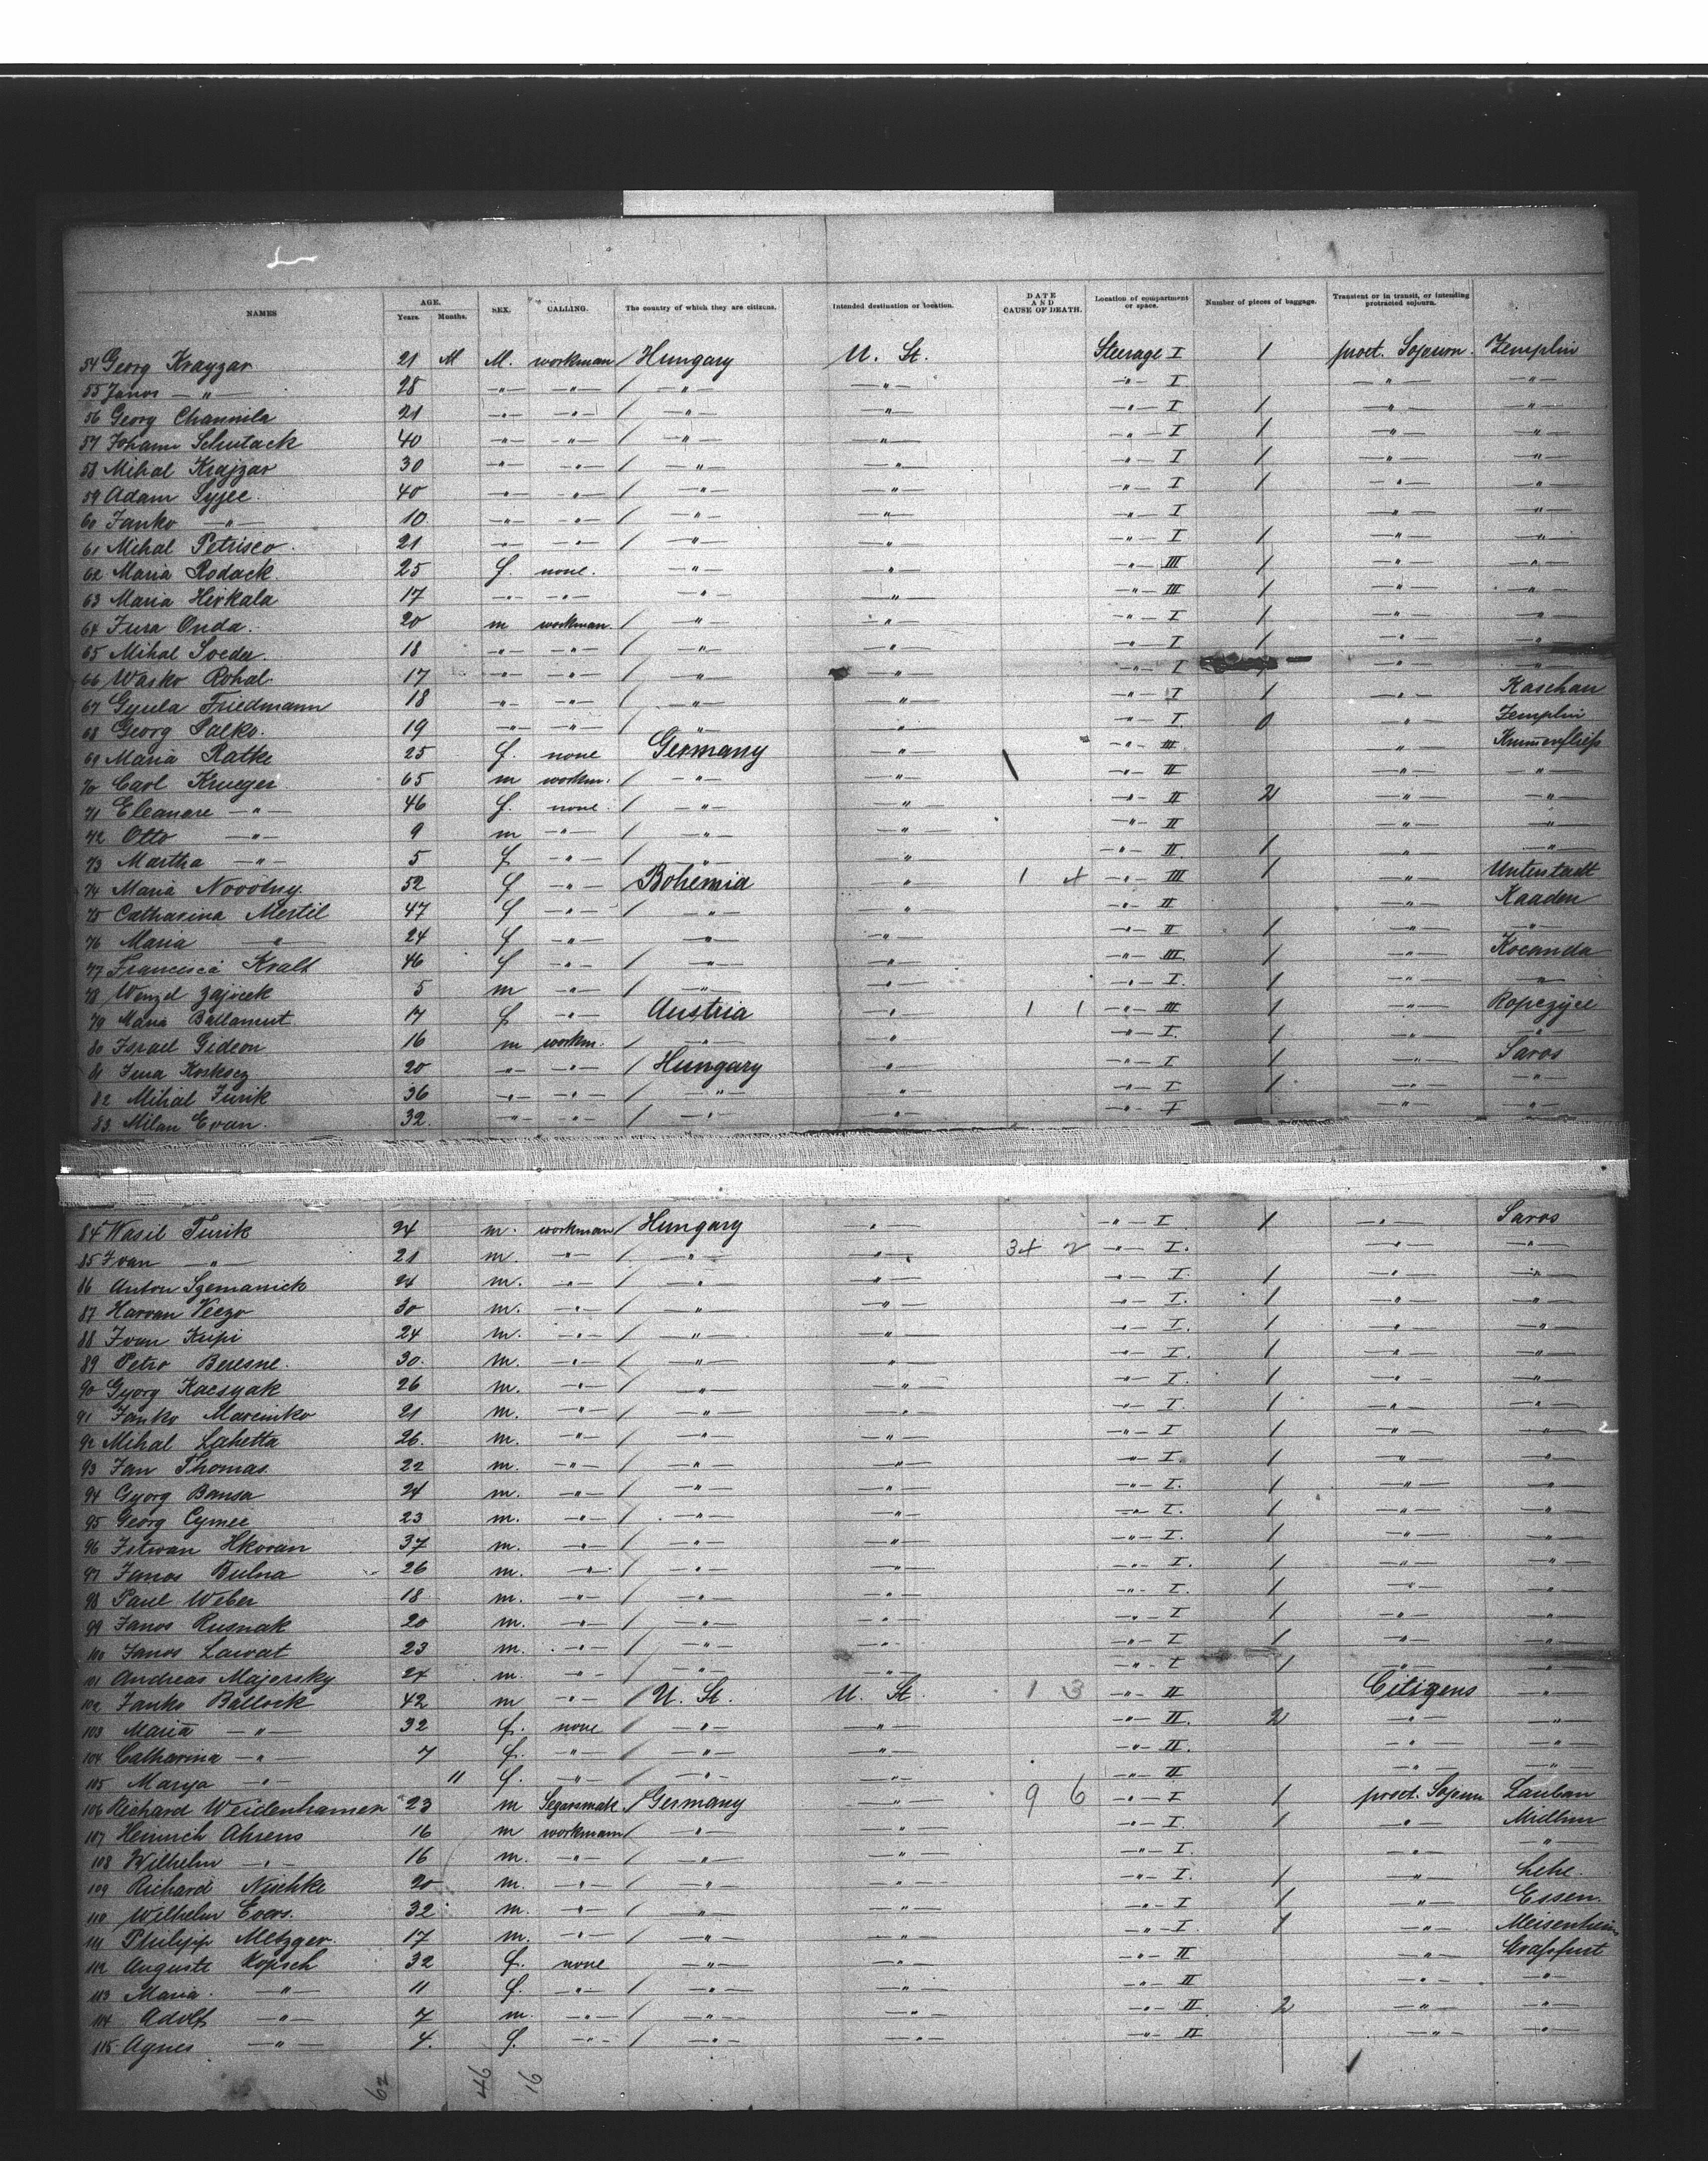 NAMES AGE. Years. Months. SEX. CALLING. The country of which they are citizens. Intended destination or location. DATE AND CAUSE OF DEATH. Location of compartment or space. Number of pieces of baggage. Transient or in transit, or intending protracted sojourn.
54 Georg Krayzar 21 M M. workman / Hungary U. St. Steerage I 1 proct. Sojourn. Zemplin
55 Janos —"— 28 —"— —"— / —"— —"— —"— I —"— —"—
56 Georg Channila 21 —"— —"— / —"— —"— —"— I 1 —"— —"—
57 Johann Schutack 40 —"— —"— / —"— —"— —"— I 1 —"— —"—
58 Mihal Krajzar 30 —"— —"— / —"— —"— —"— I 1 —"— —"—
59 Adam 40 —"— —"— / —"— —"— —"— I 1 —"— —"—
60 Janko —"— 10 —"— —"— / —"— —"— —"— I —"— —"—
61 Mihal Petrisco 21 —"— —"— / —"— —"— —"— I 1 —"— —"—
62 Maria Rodack 25 f. none. —"— —"— —"— III 1 —"— —"—
63 Maria Hirkala 17 —"— —"— —"— —"— —"— III 1 —"— —"—
64 Jura Onda. 20 m workman. / —"— —"— —"— I 1 —"— —"—
65 Mihal Soeder. 18 —"— —"— / —"— —"— —"— I 1 —"— —"—
66 Wasko Rohal 17 —"— —"— / —"— —"— —"— I —"— —"—
67 Gyula Friedmann 18 —"— —"— / —"— —"— —"— I 1 —"— Kaschau
68 Georg Palko. 19 —"— —"— / —"— —"— —"— I 0 —"— Zemplin
69 Maria Ratke 25 f. none Germany —"— —"— III "
70 Carl Krueger 65 m workm. / —"— —"— —"— II —"— —"—
71 Eleanore —"— 46 f. none. / —"— —"— —"— II 2 —"— —"—
72 Otto —"— 9 m —"— / —"— —"— —"— II —"— —"—
73 Martha —"— 5 f —"— / —"— —"— —"— II 1 —"— —"—
74 Maria Novotny 52 f —"— Bohemia —"— 1 4 —"— III 1 —"— Unterstadt
75 Catharina Mertil 47 f —"— / —"— —"— —"— II —"— Kaaden
76 Maria —"— 24 f —"— —"— —"— —"— II 1 —"— —"—
77 Francisca Kralt 46 f —"— / —"— —"— —"— III 1 —"— Kocanda
78 Wenzel Zajicek 5 m —"— / —"— —"— —"— I. 1 —"— —"—
79 Maria Ballamut 17 f —"— Austria —"— 1 1 —"— III 1 —"— Ropczyce
80 Israel Gideon 16 m workm. / —"— —"— —"— I. 1 —"— —"—
81 Jura 20 —"— —"— / Hungary —"— —"— I 1 —"— Saros
82 Mihal Jurik 36 —"— —"— / —"— —"— —"— I 1 —"— —"—
83 Milan Evan. 32 —"— —"— / —"— —"— —"— I —"— —"—
84 Wasil Turik 24 m. workman / Hungary —"— —"— I 1 —"— Saros
85 Ivan —"— 21 m. —"— / —"— —"— 34 2 —"— I. —"— —"—
86 Anton Szemanick 24 m. —"— / —"— —"— —"— I. 1 —"— —"—
87 Harvan Veczo 30 m. —"— / —"— —"— —"— I. 1 —"— —"—
88 Ivan Kupi 24 m. —"— / —"— —"— —"— I. 1 —"— —"—
89 Petro Beresne. 30. m. —"— / —"— —"— —"— I. 1 —"— —"—
90 Gyorg Kacsyak 26 m. —"— / —"— —"— —"— I. 1 —"— —"—
91 Janko Marcinko 21 m. —"— / —"— —"— —"— I 1 —"— —"—
92 Mihal Lahetta 26. m. —"— / —"— —"— —"— I 1 —"— —"—
93 Jan Thomas 22 m. —"— / —"— —"— —"— I. 1 —"— —"—
94 Gyorg Bansa 24 m. —"— / —"— —"— —"— I. 1 —"— —"—
95 Georg Cymee 23 m. —"— / —"— —"— —"— I. 1 —"— —"—
96 Istwan Hkoran 37 m. —"— / —"— —"— —"— I. 1 —"— —"—
97 Janos Bulna 26 m. —"— / —"— —"— —"— I. 1 —"— —"—
98 Paul Weber 18 m. —"— / —"— —"— —"— I. 1 —"— —"—
99 Janos Rusnak 20 m. —"— / —"— —"— —"— I 1 —"— —"—
100 Janos Lawat 23 m. —"— / —"— —"— —"— I 1 —"— —"—
101 Andreas Majersky 24 m. —"— / —"— —"— —"— I 1 —"— —"—
102 Janko Ballock 42 m —"— / U. St. U. St. 1 3 —"— II Citizens —"—
103 Maria —"— 32 f. none / —"— —"— —"— II. 2 —"— —"—
104 Catharina —"— 7 f. —"— / —"— —"— —"— II. —"— —"—
105 Marya —"— 11 f. —"— / —"— —"— —"— II —"— —"—
106 Richard Weidenhamer 23 m Segarsmak. / Germany —"— 9 6 —"— I 1 proct. Sojourn Lauban
107 Heinrich Ahrens 16 m workmann / —"— —"— —"— I. 1 —"— Midlum
108 Wilhelm —"— 16 m. —"— / —"— —"— —"— I. —"— —"—
109 Richard Nischke 20 m. —"— / —"— —"— —"— I. 1 —"— Lehe.
110 Wilhelm Evers. 32 m. —"— / —"— —"— —"— I 1 —"— Essen.
111 Philipp Metzger. 17 m. —"— / —"— —"— —"— I. 1 —"— Meisenheim
112 Auguste Kopsch 32 f. none —"— —"— —"— II —"— Strassfurt
113 Maria. —"— 11 f. —"— / —"— —"— —"— II —"— —"—
114 Adolf —"— 7 m. —"— / —"— —"— —"— II 2 —"— —"—
115 Agnes —"— 4. f. —"— / —"— —"— —"— II —"— —"—
62 46 16